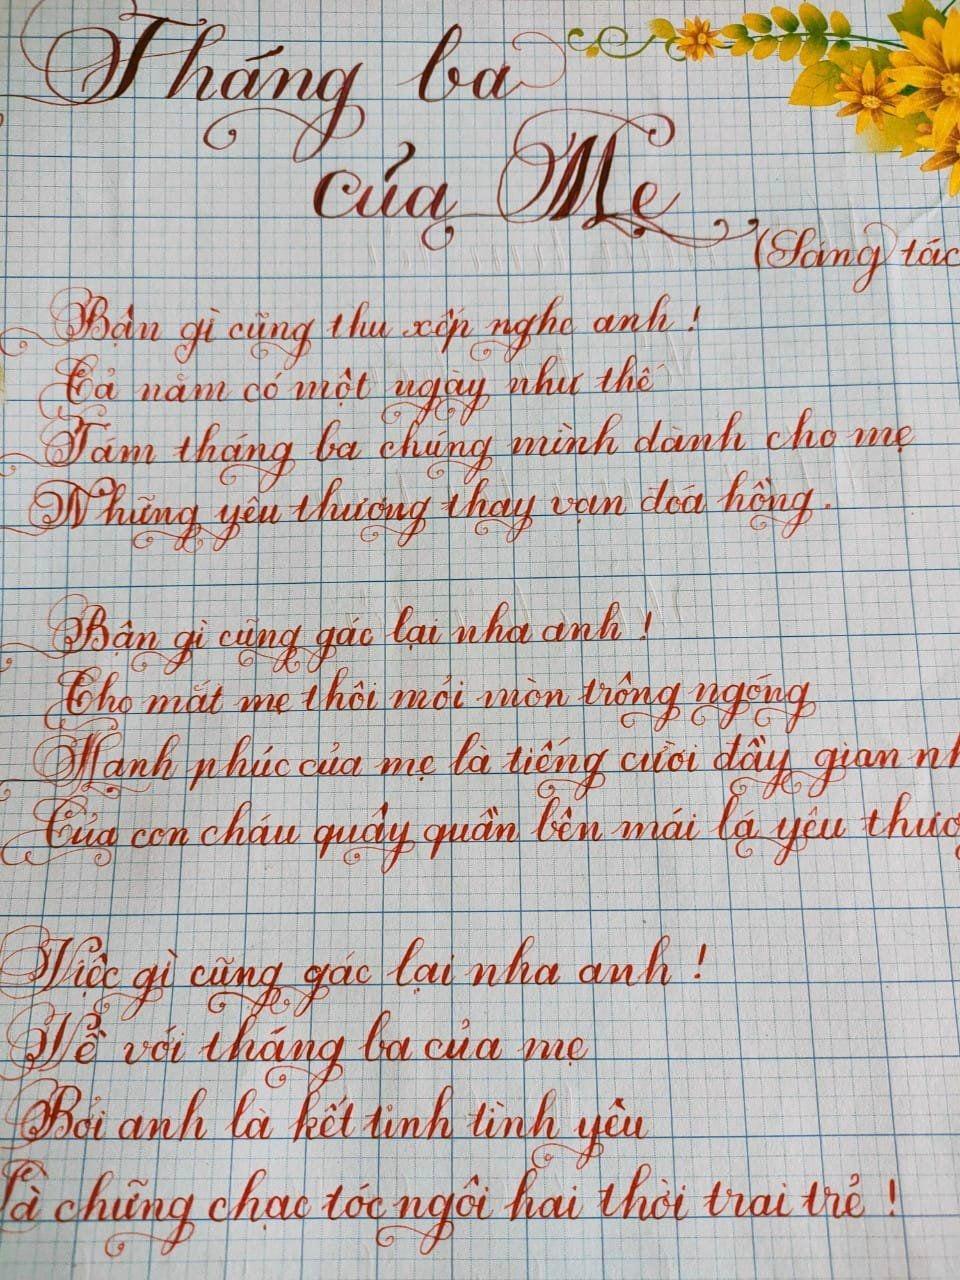 Tháng ba
của Mẹ
(Sáng tác
Bận gì cũng thu xếp nghe anh !
Cả năm có một ngày như thế
Tám tháng ba chúng mình dành cho mẹ
Những yêu thương thay vạn đoá hồng.
Bận gì cũng gác lại nha anh !
Cho mắt mẹ thôi mỏi mòn trông ngóng
Hạnh phúc của mẹ là tiếng cười đầy gian nh
Của con cháu quây quần bên mái lá yêu thươ
Việc gì cũng gác lại nha anh !
Về với tháng ba của mẹ
Bởi anh là kết tinh tình yêu
Là chững chạc tóc ngôi hai thời trai trẻ !